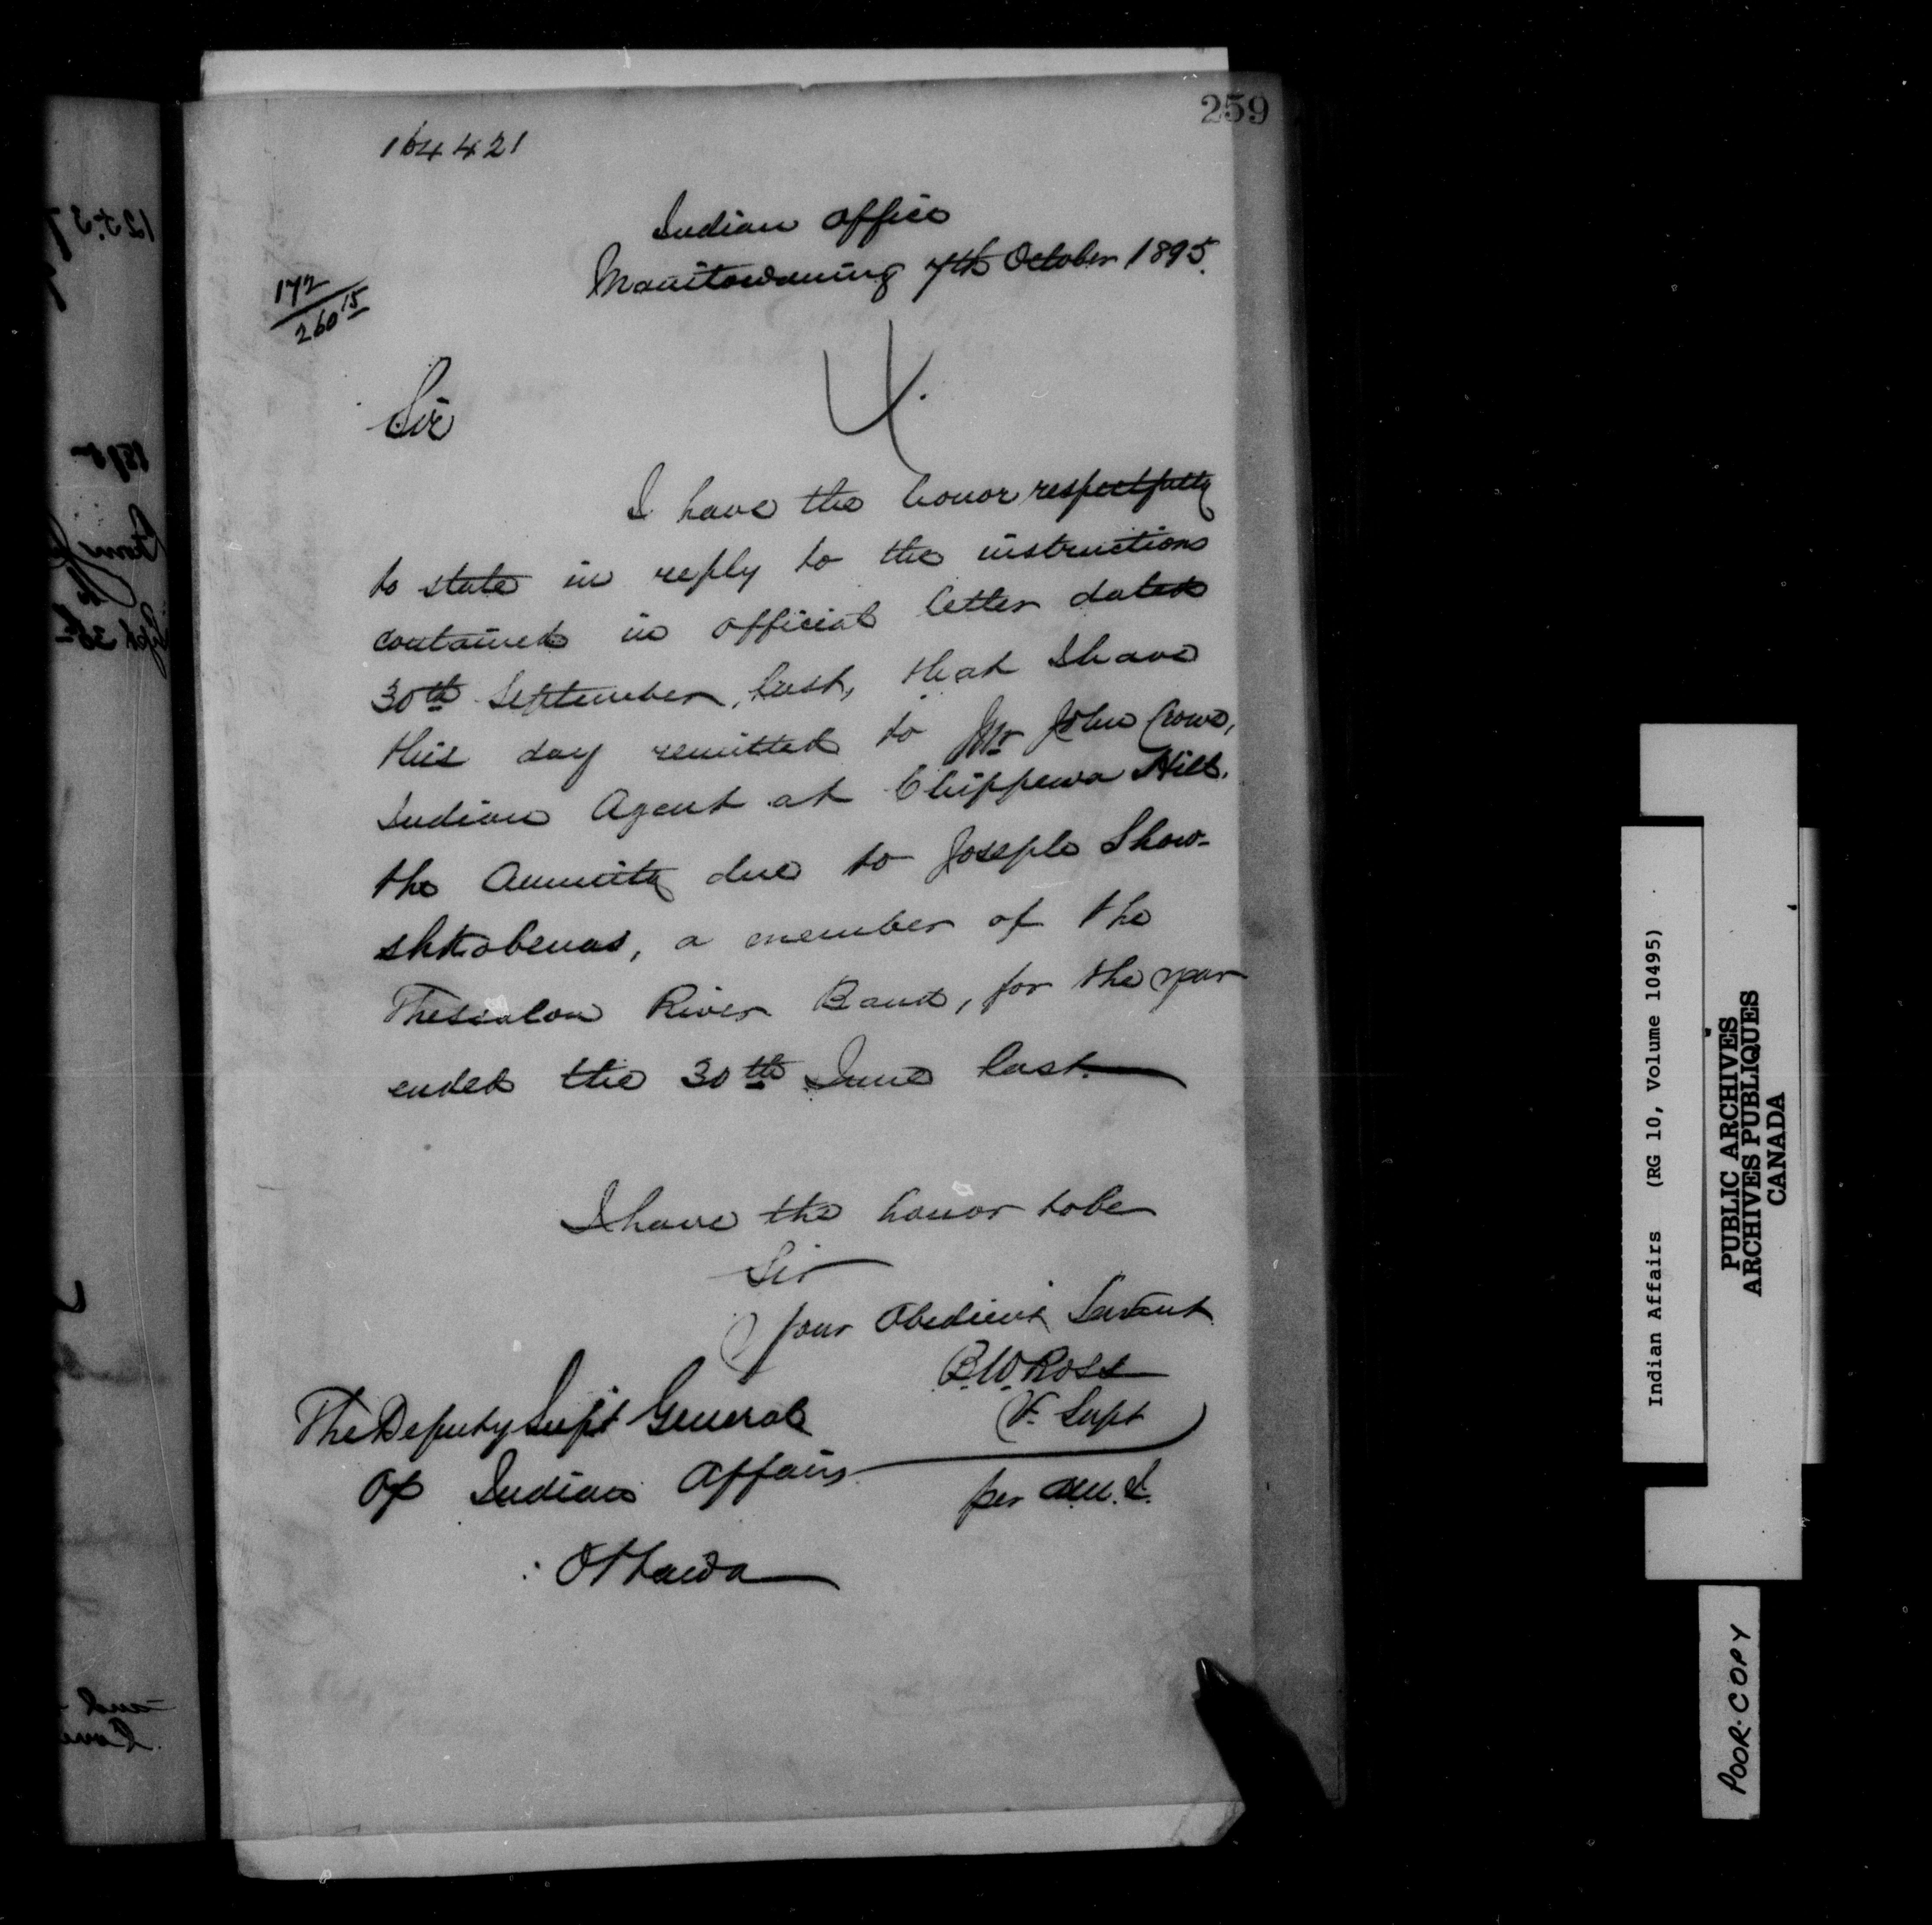 259
164421
Indian Office
Manitowaning 7th October 1895.
172
260 15
Sir
I have the honor respectfully
to state in reply to the instructions
contained in official letter dated
30th September, last, that I have
this day remitted to Mr John Crowe,
Indian Agent at Chippewa Hill.
the Annuity due to Joseph Shaw-
, a member of the
Thessalon River Band, for the year
ended the 30th June last.
I have the honor to be
Sir
Your Obedient Servant
B.W. Ross
V. Supt
The Deputy Supt General
of Indian Affairs
per
Ottawa
Indian Affairs (RG 10, Volume 10495)
PUBLIC ARCHIVES
ARCHIVES PUBLIQUES
CANADA
POOR COPY